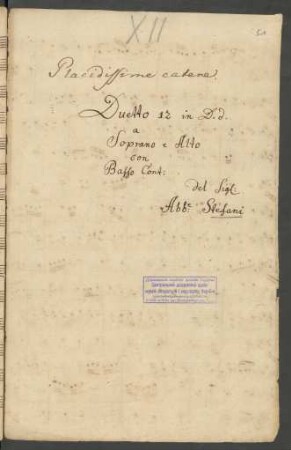 XII
Placidissime catene
Duetto 12 in D.d.
a
Soprano e Alto
con
Basso Cont:
del Sigl:
Abb.e Stefani